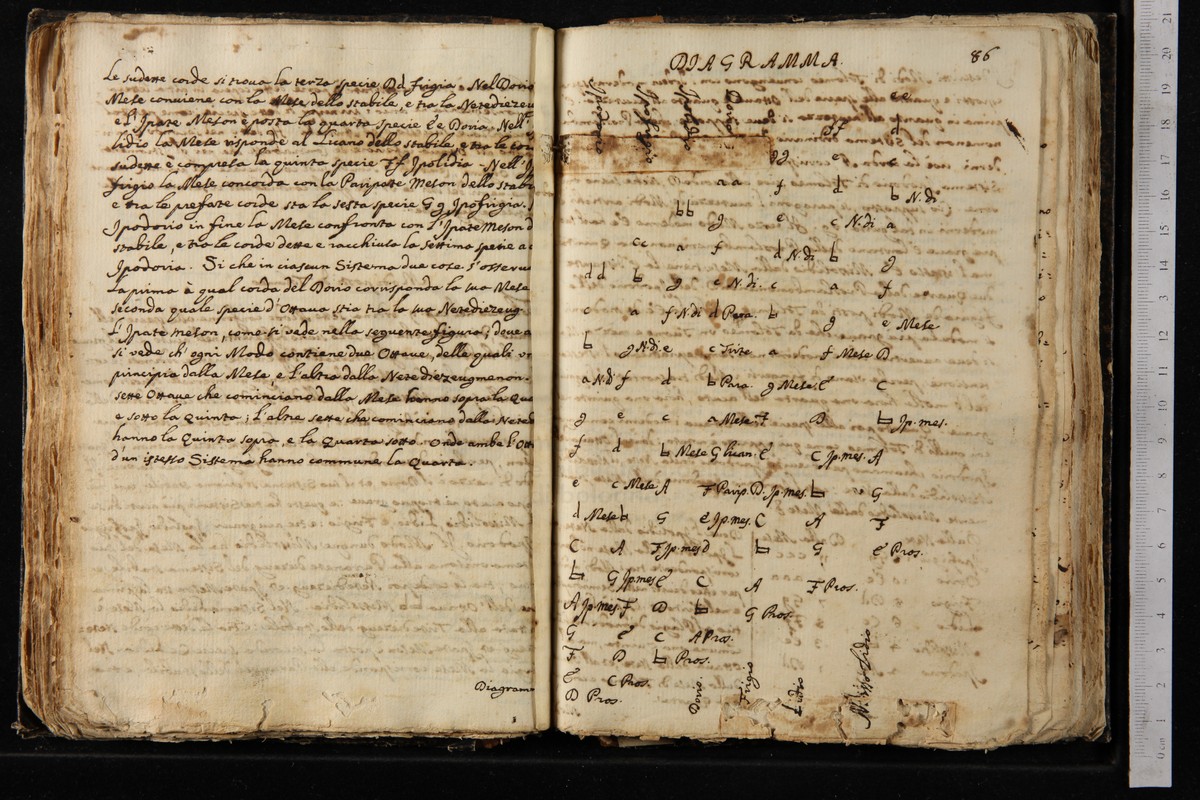 Le sudette corde si trova la terza specie Dd frigia. Nel Dorio
Mete conviene con la Mete dello stabile, e tra la Netediezeu
e l'Ipate Meson è posta la quarta specie Ee Doria. Nell'
lidio la Mete risponde al Licano dello stabile, e tra le cor
sudette è compresa la quinta specie Ff Ipolidia. Nell'Ip
frigio la Mete concorda con la Paripate Meson dello stabi
e tra le prefate corde sta la sesta specie Gg Ipofrigia.
Ipodorio in fine la Mete confronta con l'Ipate Meson d
stabile, e tra le corde dette è racchiusa la settima specie a
Ipodoria. Si che in ciascun Sistema due cose s'osserva
la prima à qual corda del Dorio corrisponda la sua Mete
seconda quale specie d'Ottava stia tra la sua Netediezeug
l'Ipate meson, come si vede nella seguente figura; dove a
si vede ch'ogni Modo contiene due Ottave, delle quali un
principia dalla Mete, e l'altra dalla Netediezeugmenon.
sette Ottave che cominciano dalla Mete hanno sopra la Qua
e sotto la Quinta; l'altre sette che cominciano dalla Neted
hanno la Quinta sopra, e la Quarta sotto. Onde ambe l'Ott
d'un istesso Sistema hanno commune la Quarta.
Diagram
DIAGRAMMA.
86
Ipodorio
Ipofrigio
Ipolidio
Dorio
ee
d
ff
gg e
aa f d b N.di
bb g e c N.di a
cc a f d N.di b g
dd b g e N.di. c a f
c a f N.di d Para. b g e Mete
b g N.di e c Trite a f Mete D
a N.di f d b Para. g Mete. E C
g e c a Mete. F D b Ip.mes.
f d b Mete G lican. E C Ip.mes. A
e c Mete A F Parip. D. Ip.mes. b G
d Mete b G E Ip.mes. C A F
C A F Ip.mes D b G E Pros.
b G Ip.mes E C A F Pros.
A Ip.mes. F D b G Pros.
G E C A Pros.
F D b Pros.
E C Pros.
D Pros.
Dorio.
Frigio
Lidio
Missolidio